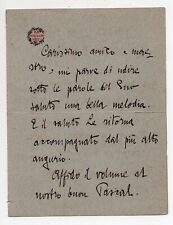 Carissimo amico e mae-
stro, mi parve di udire
sotto le parole del Suo
saluto una bella melodia.
E il saluto Le ritorna
accompagnato dal più alto
augurio.
Affido il volume al
nostro buon Pascal.